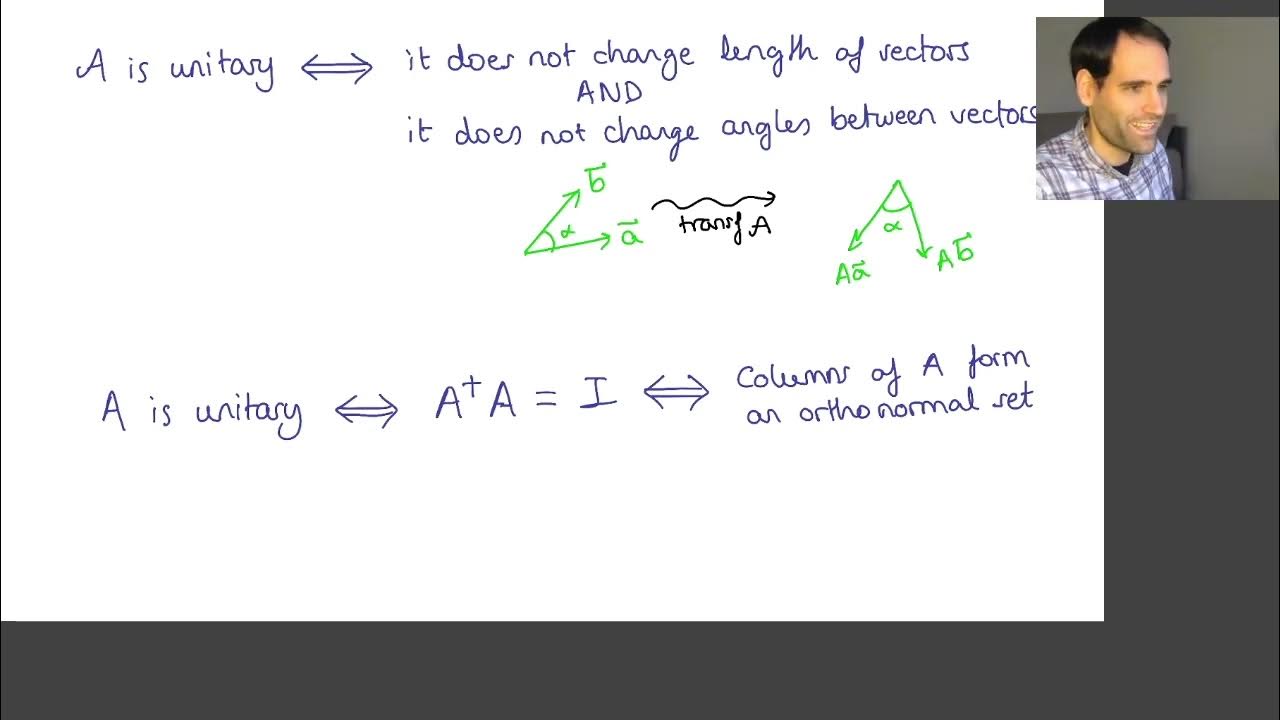 A is unitary ⟺ it does not change length of vectors
AND
it does not change angles between vectors
b⃗
α
a⃗
transf A
α
Aa⃗
Ab⃗
A is unitary ⟺ A†A = I ⟺ Columns of A form
an orthonormal set